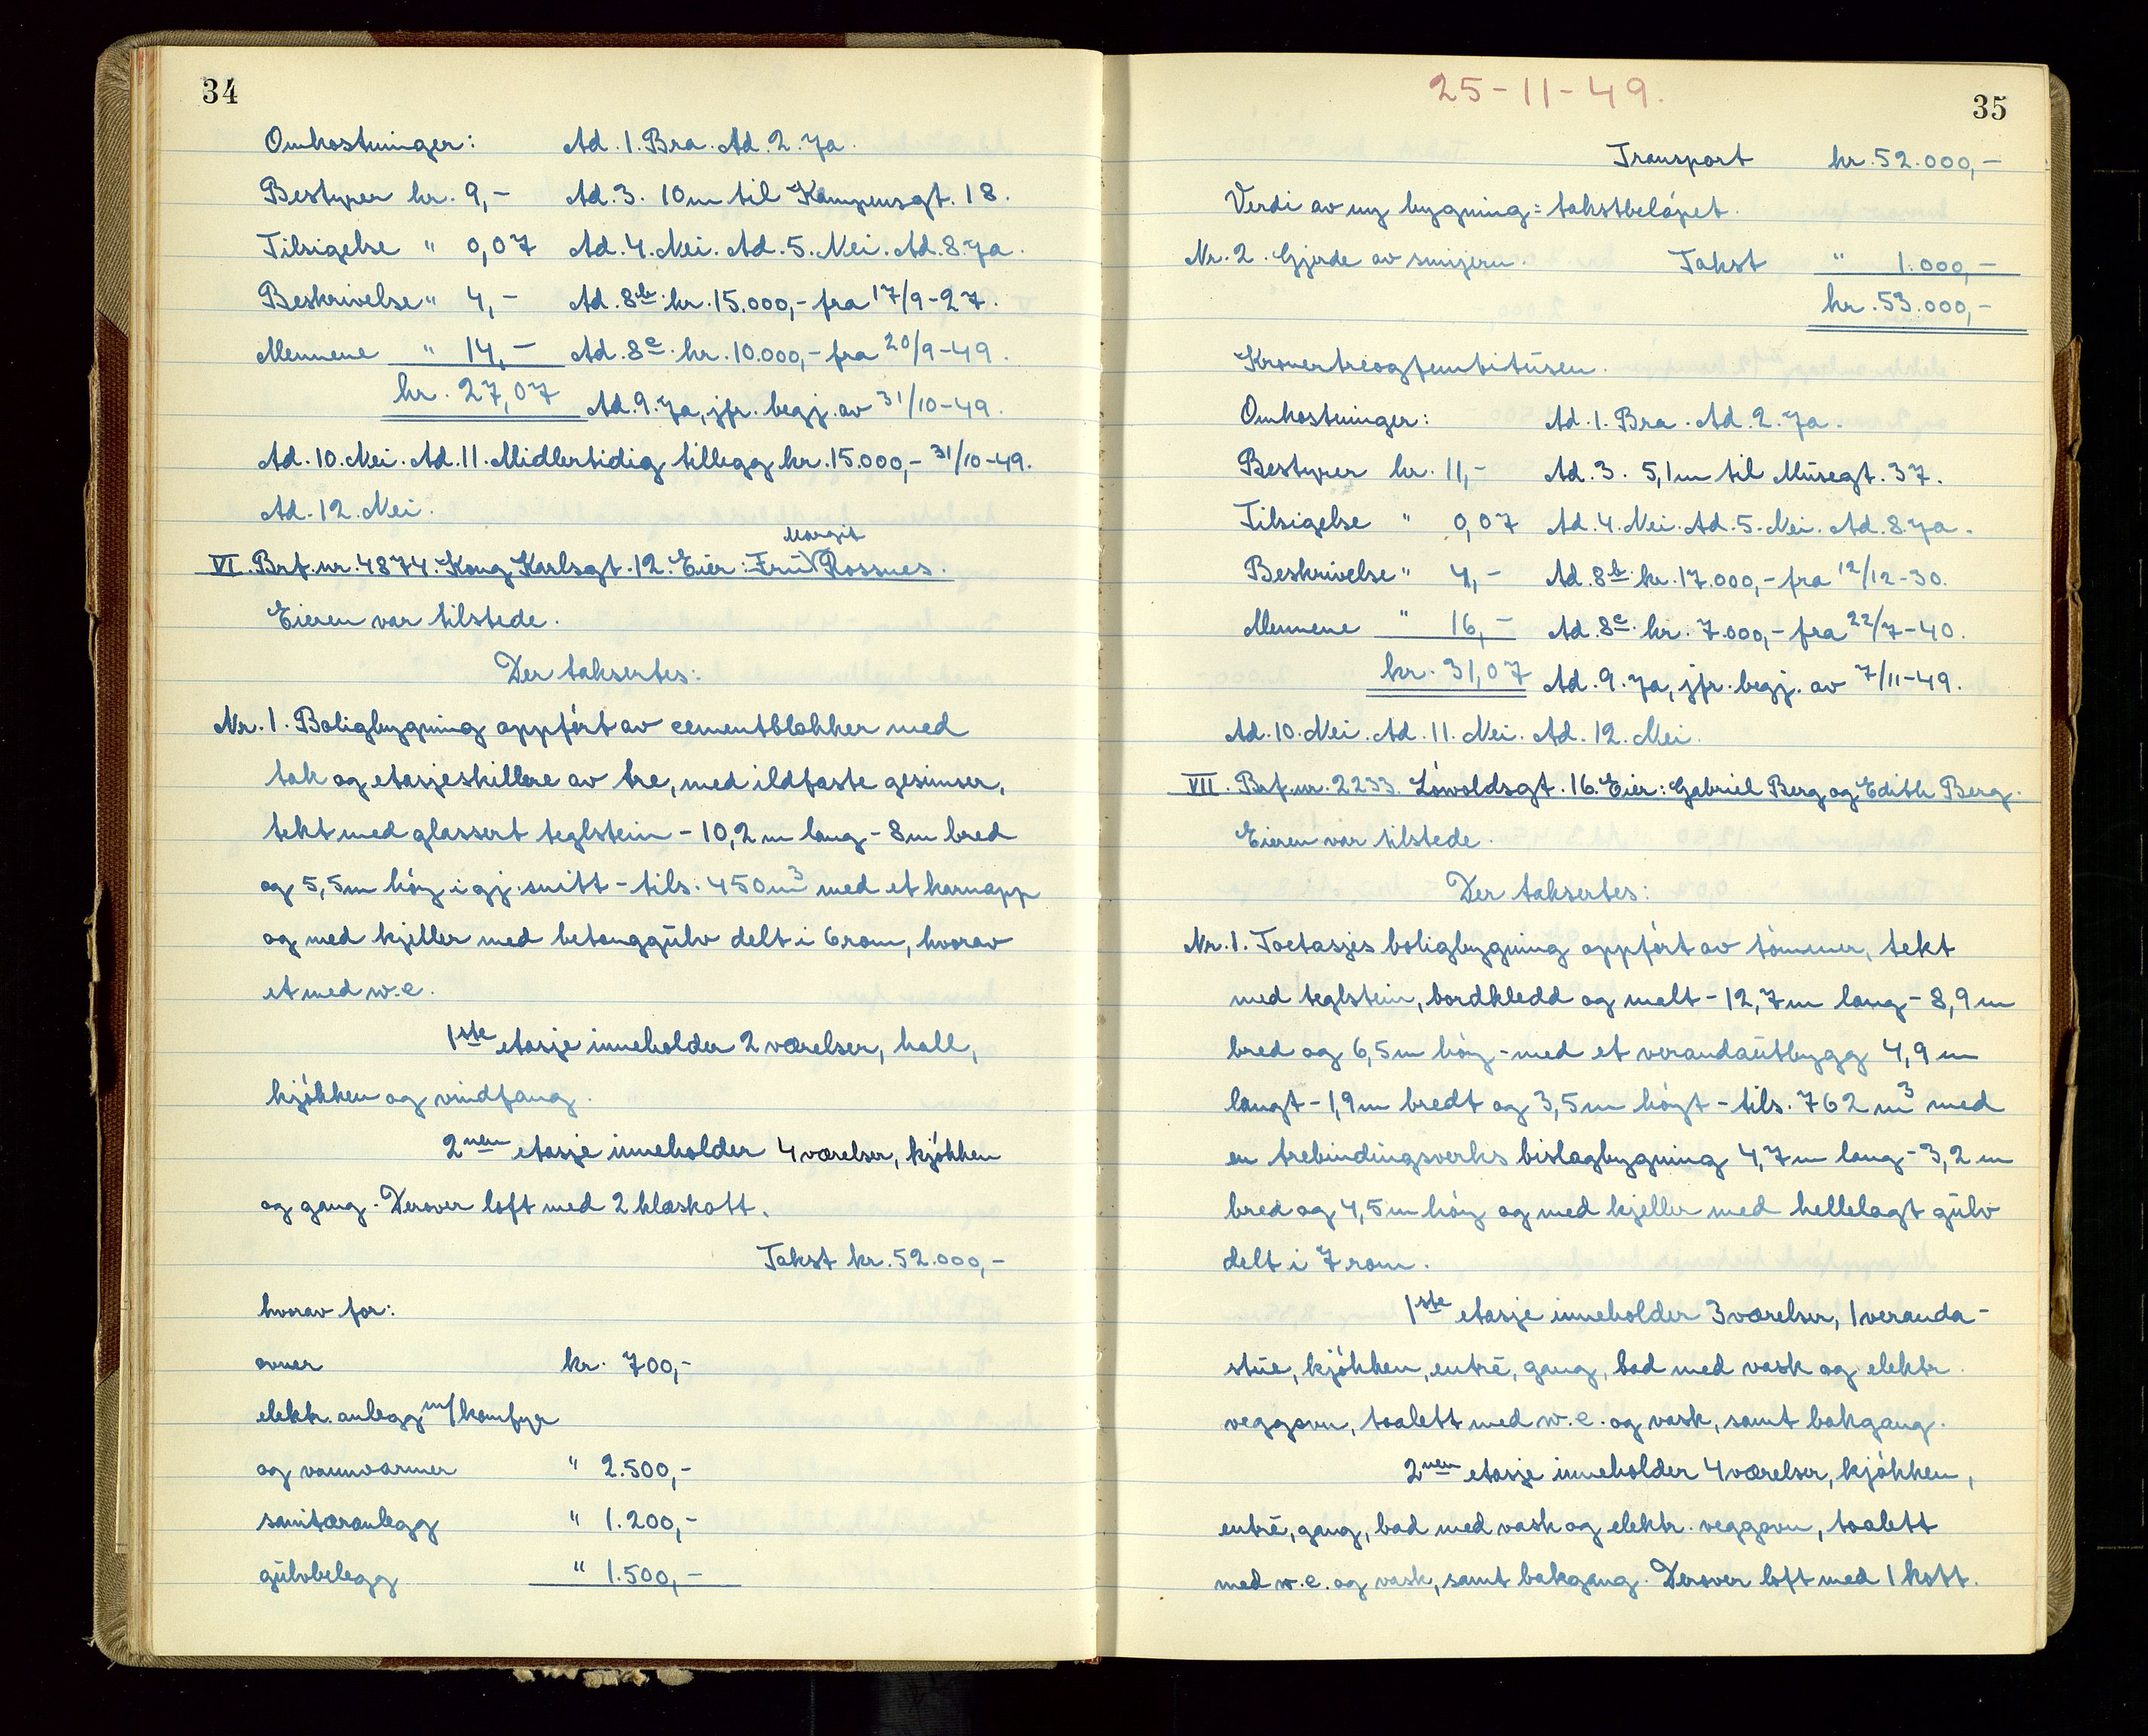 34
Omkostninger: Ad. 1. Bra. Ad. 2. Ja.
Bestyrer kr. 9,- Ad. 3. 10m til Kampensgt. 18.
Tilsigelse " 0,07 Ad. 4. Nei. Ad. 5. Nei. Ad. 8. Ja.
Beskrivelse " 4,- Ad. 8b. kr. 15.000,- fra 17/9-27.
Mennene " 14,- Ad. 8c. kr. 10.000,- fra 20/9-49.
kr. 27,07 Ad. 9. Ja, jfr. begj. av 31/10-49.
Ad. 10. Nei. Ad. 11. Midlertidig tillegg kr. 15.000,- 31/10-49.
Ad. 12. Nei.
Margit
VI. Brf. nr. 4874. Kong Karlsgt. 12. Eier: Frü Rossnes.
Eieren var tilstede.
Der taksertes:
Nr. 1. Boligbygning oppført av cementblokker med
tak og etasjeskillere av tre, med ildfaste gesimser,
tekt med glassert teglstein - 10,2 m lang - 8m bred
og 5,5m høy i gj. snitt - tils. 450m³ med et karnapp
og med kjeller med betonggülv delt i 6 rom, hvorav
et med w.c.
1ste etasje inneholder 2 værelser, hall,
kjøkken og vindfang.
2nen etasje inneholder 4 værelser, kjøkken
og gang. Derover loft med 2 klæskott.
Takst kr. 52.000,-
hvorav for:
ovner kr. 700,-
elektr. anlegg m/komfyr
og vannvarmer " 2.500,-
sanitæranlegg " 1.200,-
gülvbelegg " 1.500,-
25-11-49.
35
Transport kr. 52.000,-
Verdi av ny bygning = takstbeløpet.
Nr. 2. Gjerde av smijern. Takst " 1.000,-
kr. 53.000,-
Kronertreogfemtitüsen.
Omkostninger: Ad. 1. Bra. Ad. 2. Ja.
Bestyrer kr. 11,- Ad. 3. 5,1m til Müsegt. 37.
Tilsigelse " 0,07 Ad. 4. Nei. Ad. 5. Nei. Ad. 8. Ja.
Beskrivelse " 4,- Ad. 8b. kr. 17.000,- fra 12/12-30.
Mennene " 16,- Ad. 8c. kr. 7.000,- fra 22/7-40.
kr. 31,07 Ad. 9. Ja, jfr. begj. av 7/11-49.
Ad. 10. Nei. Ad. 11. Nei. Ad. 12. Nei.
VII. Brf. nr. 2233. Løwoldsgt. 16. Eier: Gabriel Berg og Edith Berg.
Eieren var tilstede.
Der taksertes:
Nr. 1. Toetasjes boligbygning oppført av tømmer, tekt
med teglstein, bordkledd og malt - 12,7m lang - 8,9 m
bred og 6,5m høy - med et verandaütbygg 4,9 m
langt - 1,9m bredt og 3,5m høyt - tils. 762 m³ med
en trebindingsverks bislagbygning 4,7m lang - 3,2 m
bred og 4,5m høy og med kjeller med hellelagt gülv
delt i 7 rom.
1ste etasje inneholder 3 værelser, 1 veranda-
stüe, kjøkken, entré, gang, bad med vask og elektr.
veggovn, toalett med w.c. og vask, samt bakgang.
2nen etasje inneholder 4 værelser, kjøkken,
entré, gang, bad med vask og elektr. veggovn, toalett
med w.c. og vask, samt bakgang. Derover loft med 1 kott.